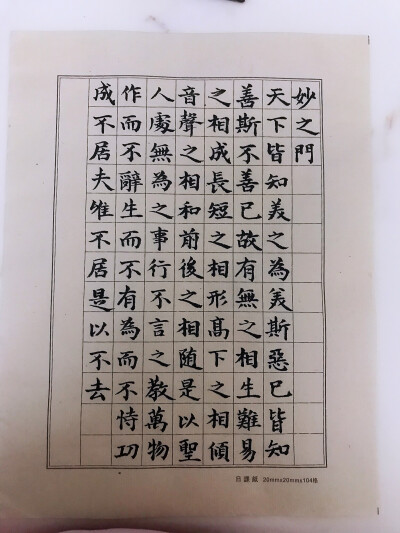 妙之門
天下皆知美之為美斯惡已皆知
善斯不善已故有無之相生難易
之相成長短之相形高下之相傾
音聲之相和前後之相随是以聖
人處無為之事行不言之教萬物
作而不辭生而不有為而不恃功
成不居夫唯不居是以不去
日課 20mmx20mmx104格